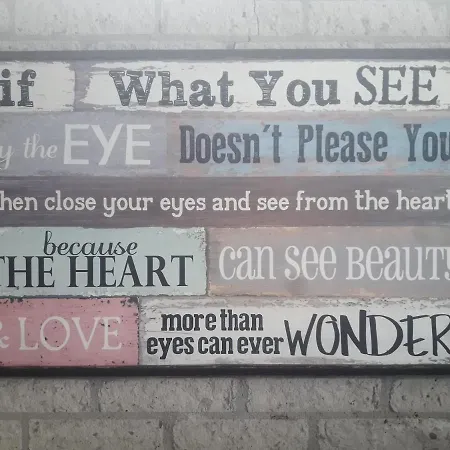 if What You SEE
y the EYE Doesn't Please You
hen close your eyes and see from the heart
because
THE HEART can see BEAUTY
& LOVE more than
eyes can ever WONDER